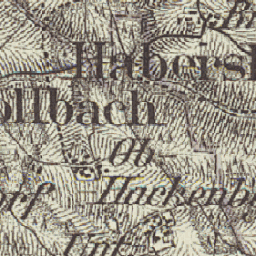 Br
Habersb
ollbach
Ob
Hackenb
orf
Unt